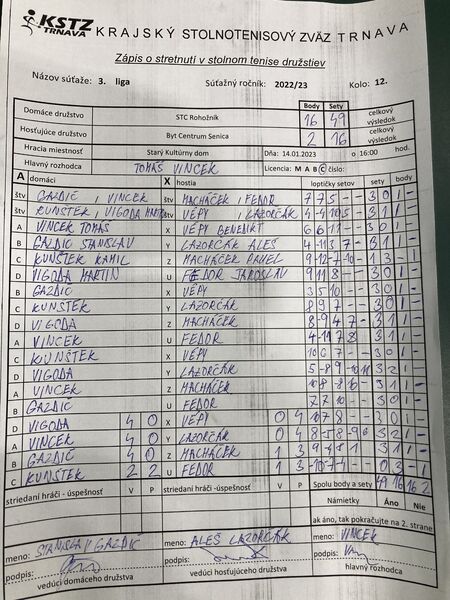 KSTZ TRNAVA KRAJSKÝ STOLNOTENISOVÝ ZVÄZ TRNAVA
Zápis o stretnutí v stolnom tenise družstiev
Názov súťaže: 3. liga Súťažný ročník: 2022/23 Kolo: 12.
Body Sety celkový výsledok
Domáce družstvo STC Rohožník 16 49
Hosťujúce družstvo Byt Centrum Senica 2 16 celkový výsledok
Hracia miestnosť Starý Kultúrny dom Dňa: 14.01.2023 o 16:00 hod.
Hlavný rozhodca TOMÁŠ VINCEK Licencia: M A B C číslo:
A domáci X hostia loptičky setov sety body
štv GAZDIC, VINCEK štv MACHÁČEK, FEDOR 7 7 5 - - 3 0 1 -
štv KUNŠTEK, VIGODA MARTIN štv VÉPY, LAZORČÁK 3 1 1 -
A VINCEK TOMÁŠ X VÉPY BENEDIKT 6 6 11 - - 3 0 1 -
B GAZDIC STANISLAV Y LAZORČÁK ALEŠ 3 1 1 -
C KUNŠTEK KAMIL Z MACHÁČEK PAVEL 1 3 - 1
D VIGODA MARTIN U FEDOR JAROSLAV 9 11 8 - - 3 0 1 -
B GAZDIC X VÉPY 3 5 10 - - 3 0 1 -
C KUNŠTEK Y LAZORČÁK 8 9 7 - - 3 0 1 -
D VIGODA Z MACHÁČEK 3 1 1 -
A VINCEK U FEDOR 3 1 1 -
C KUNŠTEK X VÉPY 10 6 7 - - 3 0 1 -
D VIGODA Y LAZORČÁK 3 2 1 -
A VINCEK Z MACHÁČEK 3 1 1 -
B GAZDIC U FEDOR 7 7 10 - - 3 0 1 -
D VIGODA 4 0 X VÉPY 0 4 10 7 8 - - 3 0 1 -
A VINCEK 4 0 Y LAZORČÁK 0 4 3 2 1 -
B GAZDIC 4 0 Z MACHÁČEK 1 3 3 1 1 -
C KUNŠTEK 2 2 U FEDOR 1 3 0 3 - 1
striedaní hráči - úspešnosť V P striedaní hráči -úspešnosť V P Spolu body a sety 49 16 16 2
Námietky Áno Nie
ak áno, tak pokračujte na 2. strane
meno: STANISLAV GAZDIC meno: ALEŠ LAZORČÁK meno: VINCEK
podpis: podpis: podpis:
vedúci domáceho družstva vedúci hosťujúceho družstva hlavný rozhodca